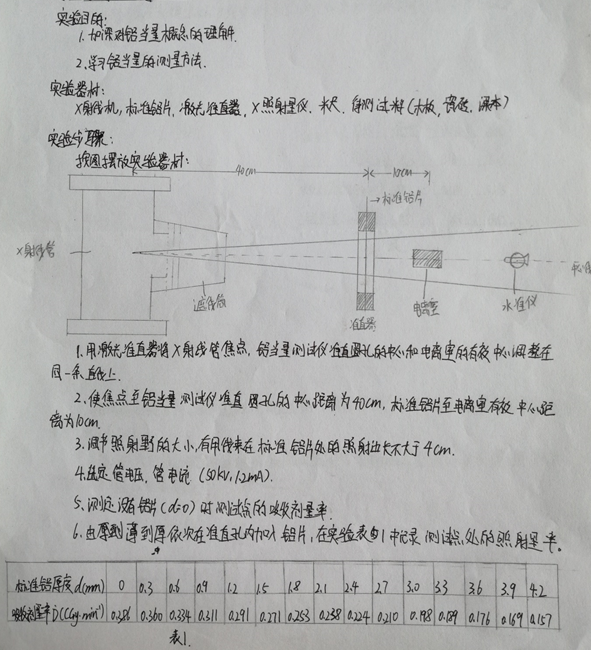 实验目的:
1.加深对铝当量概念的理解.
2.学习铝当量的测量方法.
实验器材:
X射线机,标准铝片,激光准直器,X照射量仪、米尺、待测试样(木板,瓷砖、课本)
实验步骤:
按图摆放实验器材:
40cm
10cm
标准铝片
X射线管
遮线筒
准直器
电离室
水准仪
1.用激光准直器将X射线管焦点,铝当量测试仪准直圆孔的中心和电离室的有效中心调整在
同一条直线上.
2.使焦点至铝当量测试仪准直圆孔的中心距离为40cm,标准铝片至电离室有效中心距
离为10cm.
3.调节照射野的大小,有用线束在标准铝片处的照射边长不大于4cm.
4.选定管电压,管电流(50kV,1.2mA).
5、测定没有铝片(d=0)时测试点的吸收剂量率.
6.由薄到厚依次在准直孔内加入铝片,在实验表1中记录测试点处的照射量率。
标准铝厚度d(mm) 0 0.3 0.6 0.9 1.2 1.5 1.8 2.1 2.4 2.7 3.0 3.3 3.6 3.9 4.2
吸收剂量率Ḋ(CGy·min⁻¹) 0.386 0.360 0.334 0.311 0.291 0.271 0.253 0.238 0.224 0.210 0.198 0.189 0.176 0.169 0.157
表1.